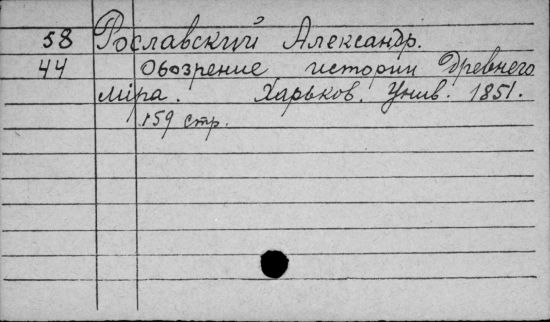 58 Рославский Александр.
44 Обозрение истории древнего
міра. Харьков. Унив. 1851.
159 стр.